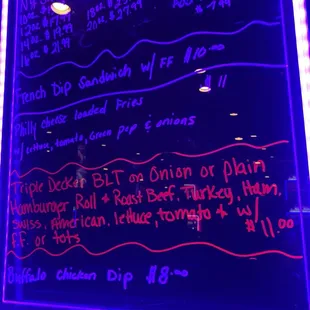 14oz. $19.99
16oz $21.99
18oz.
20oz. $27.99
French Dip Sandwich w/ FF $10.00
Philly cheese loaded Fries $11
w/ tomato, Green pep & onions
Triple Decker BLT on Onion or plain
Hamburger Roll & Roast Beef, Turkey, Ham,
Swiss, American, lettuce, tomato & w/
F.F. or tots $11.00
Buffalo Chicken Dip $8.00